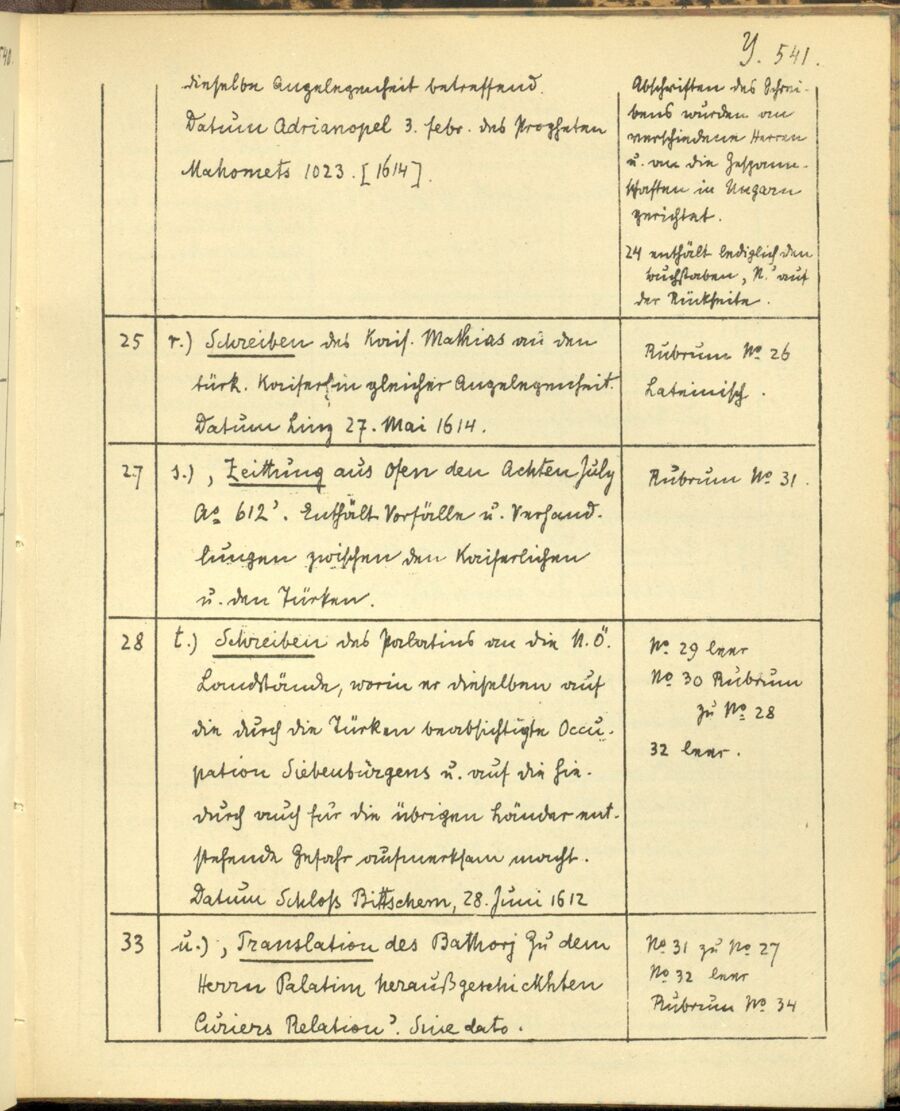 Y. 541.
dieselbe Angelegenheit betreffend.
Datum Adrianopel 3. febr. des Propheten
Mahomets 1023. [1614].
Abschriften des Schrei-
bens wurden an
verschiedene Herren
u. an die Gespann-
schaften in Ungarn
gerichtet.
24 enthält lediglich den
Buchstaben ‚N.' auf
der Rückseite.
25 r.) Schreiben des Kais. Mathias an den
türk. Kaiser in gleicher Angelegenheit.
Datum Linz 27. Mai 1614.
Rubrum No 26
Lateinisch.
27 s.) ‚Zeittung aus Ofen den Achten July
Ao 612'. Enthält Vorfälle u. Verhand-
lungen zwischen den Kaiserlichen
u. den Türken.
Rubrum No 31.
28 t.) Schreiben des Palatins an die N.Ö.
Landstände, worin er dieselben auf
die durch die Türken beabsichtigte Occu-
pation Siebenbürgens u. auf die hie-
durch auch für die übrigen Länder ent-
stehende Gefahr aufmerksam macht.
Datum Schloß Bittschem, 28. Juni 1612
No 29 leer
No 30 Rubrum
zu No 28
32 leer.
33 u.) ‚Translation des Bathorj zu dem
Herrn Palatim heraußgeschickhten
Curiers Relation'. Sine dato.
No 31 zu No 27
No 32 leer
Rubrum No 34